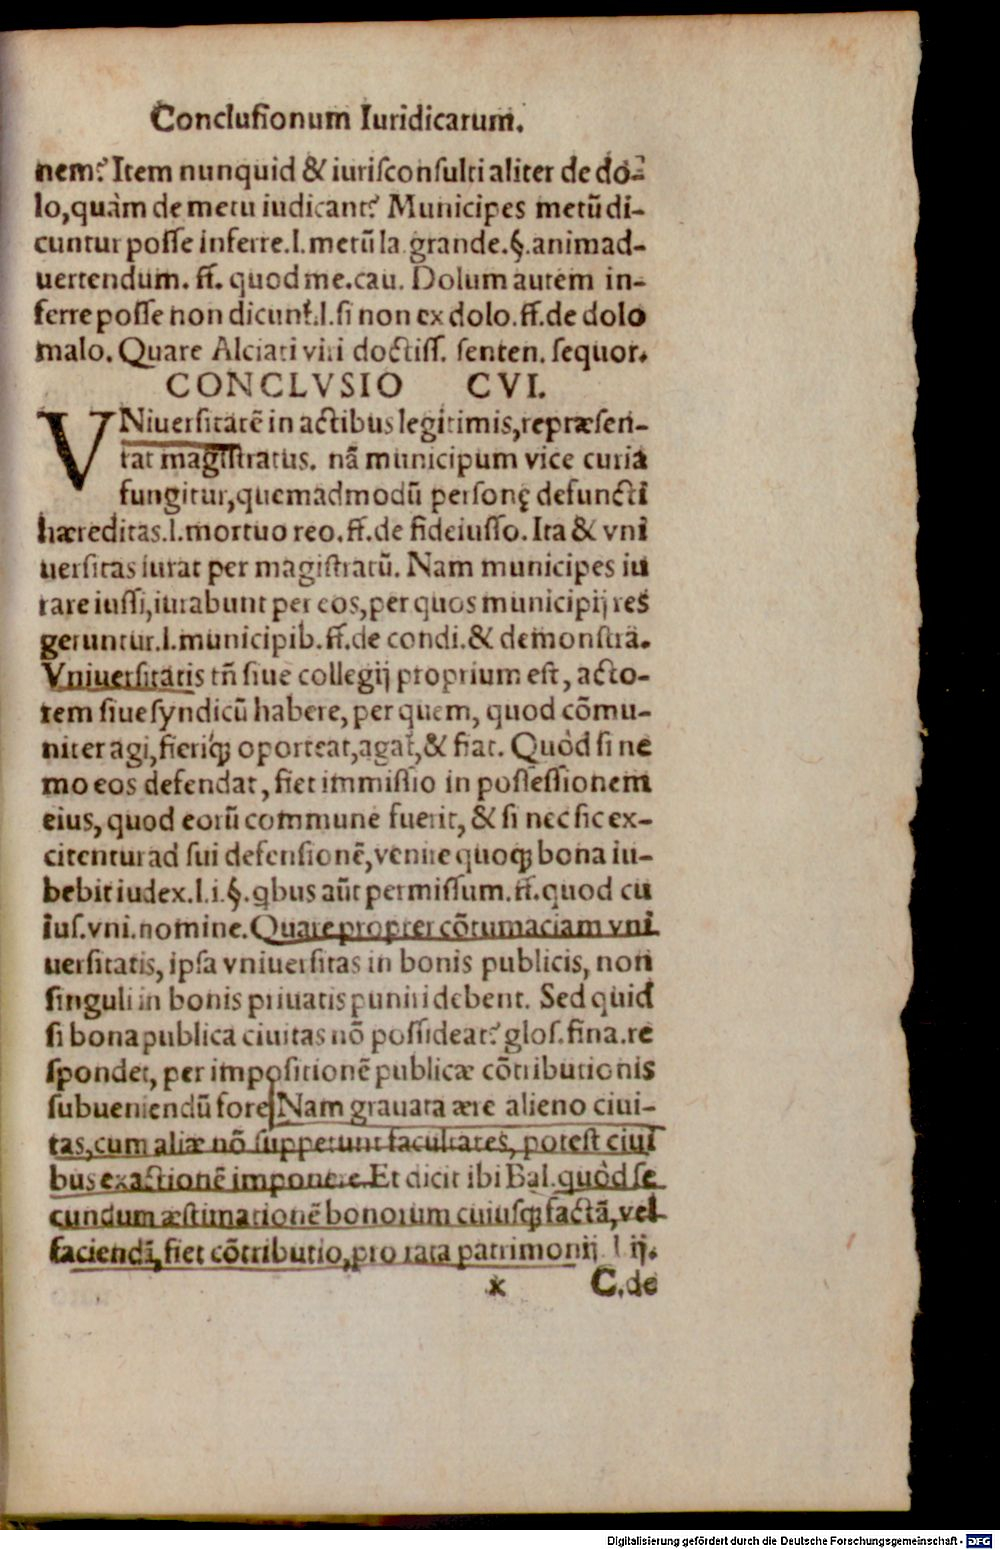 Conclusionum Iuridicarum.
nem? Item nunquid & iurisconsulti aliter de do-
lo, quàm de metu iudicant? Municipes metū di-
cuntur posse inferre. l. metū la grande. §. animad-
uertendum. ff. quod me. cau. Dolum autem in-
ferre posse non dicunt̃. l. si non ex dolo. ff. de dolo
malo. Quare Alciati viri doctiss. senten. sequor.
CONCLVSIO CVI.
VNiuersitatē in actibus legitimis, repræsen-
tat magistratus. nā municipum vice curia
fungitur, quemadmodū personę defuncti
hæreditas. l. mortuo reo. ff. de fideiusso. Ita & vni
uersitas iurat per magistratū. Nam municipes iu
rare iussi, iurabunt per eos, per quos municipij res
geruntur. l. municipib. ff. de condi. & demonstra.
Vniuersitatis tñ siue collegij proprium est, acto-
rem siue syndicū habere, per quem, quod cōmu-
niter agi, fieriq́; oporteat, agat̃, & fiat. Quòd si ne
mo eos defendat, fiet immissio in possessionem
eius, quod eorū commune fuerit, & si nec sic ex-
citentur ad sui defensionē, venire quoq; bona iu-
bebit iudex. l. i. §. qbus aūt permissum. ff. quod cu
ius. vni. nomine. Quare propter cōtumaciam vni
uersitatis, ipsa vniuersitas in bonis publicis, non
singuli in bonis priuatis puniri debent. Sed quid
si bona publica ciuitas nō possideat? glos. fina. re
spondet, per impositionē publicæ cōtributionis
subueniendū fore. Nam grauata ære alieno ciui-
tas, cum aliæ nō suppetunt facultates, potest ciui
bus exactionē imponere. Et dicit ibi Bal. quòd se
cundum æstimationē bonorum cuiusq; factā, vel
faciendā, fiet cōtributio, pro rata patrimonij l ij.
x C. de
Digitalisierung gefördert durch die Deutsche Forschungsgemeinschaft - DFG